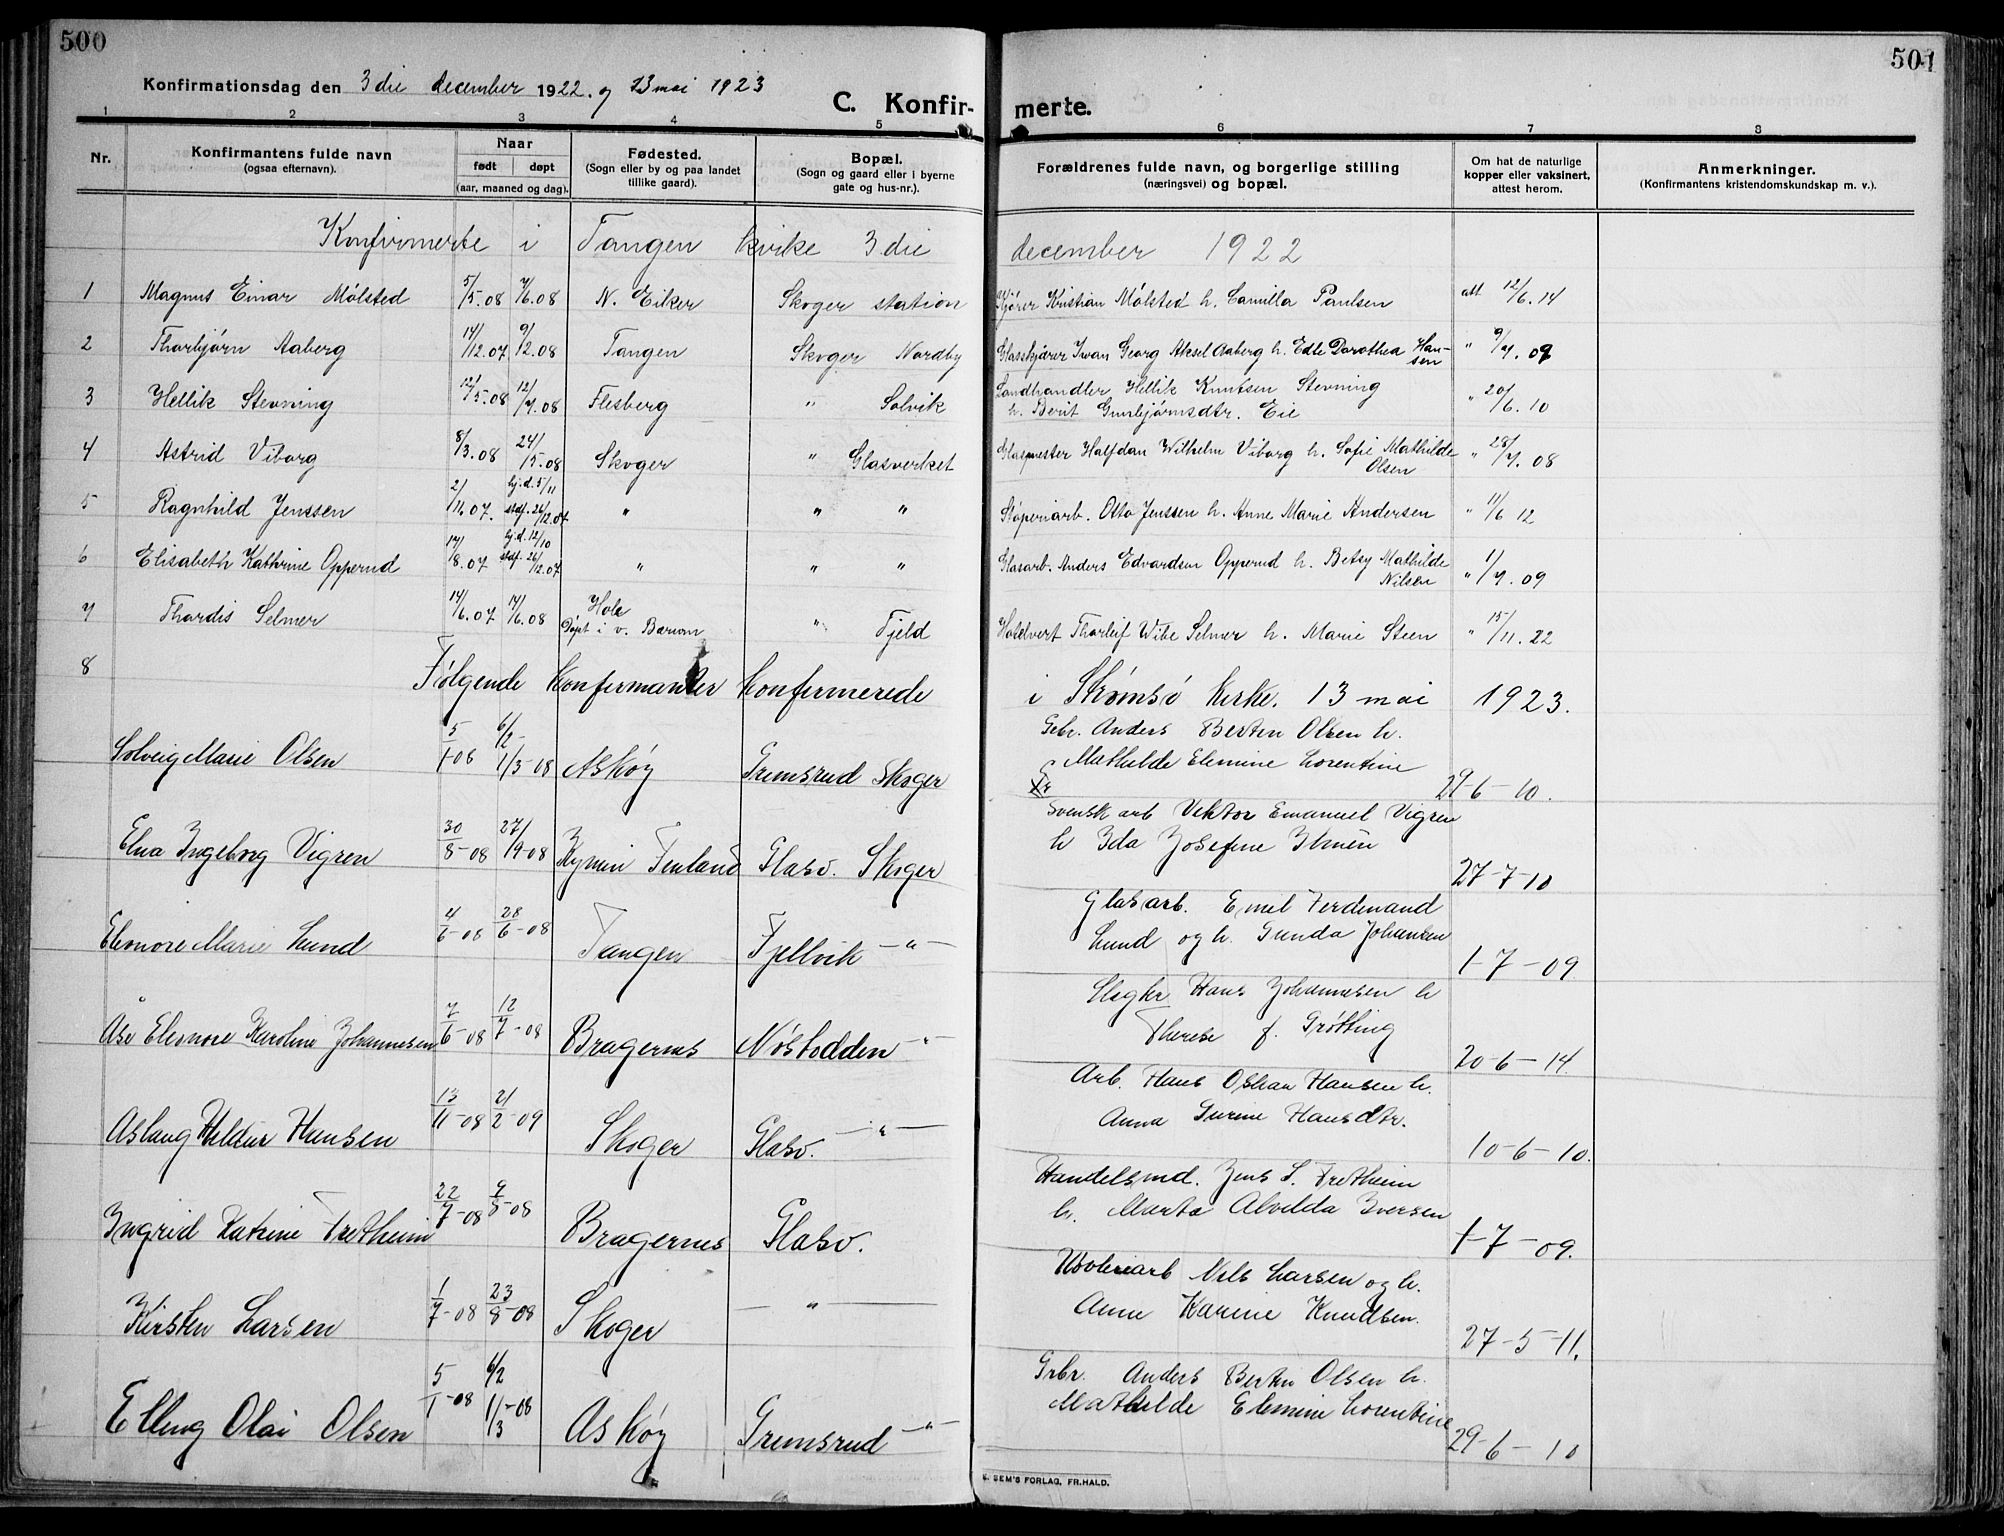 500
501
Konfirmationsdag den 3 die december 1922. og 13 mai 1923
C. Konfirmerte.
1 2 3 4 5 6 7 8
Nr.
Konfirmantens fulde navn (ogsaa efternavn).
Naar født døpt (aar, maaned og dag).
Fødested. (Sogn eller by og paa landet tillike gaard).
Bopæl. (Sogn og gaard eller i byerne gate og hus-nr.).
Forældrenes fulde navn, og borgerlige stilling (næringsvei) og bopæl.
Om hat de naturlige kopper eller vaksinert, attest herom.
Anmerkninger. (Konfirmantens kristendomskundskap m. v.).
Konfirmerte i Tangen kirke 3 die december 1922
1 Magnus Einar Mølsted 5/5.08 7/6.08 N. Eiker Skoger station Kjører Kristian Mølsted h. Camilla Paulsen att 12/6.14
2 Thorbjørn Aaberg 14/12.07 9/2.08 Tangen Skoger Nordby Glasskjærer Iwan Georg Aksel Aaberg h. Edle Dorothea Hansen " 9/7.09
3 Hellik Stevning 12/5.08 12/7.08 Flesberg " Solvik Landhandler Hellik Knutsen Stevning
h. Berit Gunbjørnsdtr. Eie " 20/6.10
4 Astrid Viborg 8/3.08 24/5.08 Skoger " Glasverket Glasmester Halfdan Wilhelm Viborg h. Sofie Mathilde Olsen " 28/7.08
5 Ragnhild Jenssen 2/11.07. hj.d. 5/11 stadf. 26/12.07 " " " Støperiarb. Otto Jenssen h. Anne Marie Andersen " 11/6 12
6 Elisabeth Kathrine Opperud 17/8.07 hj.d. 12/10 stadf. 26/12.07 " " " Glasarb. Anders Edvardsen Opperud h. Betsy Mathilde Nilsen " 1/7.09
7 Thordis Selmer 14/6.07 14/6.08 Hole Døpt i v. Bærum " Fjeld Hotelvert Thorleif Wibe Selmer h. Marie Steen " 15/11.22
8
Følgende Konfirmanter Konfirmerede i Strømsø Kirke. 13 mai 1923.
Solveig Marie Olsen 5/1-08 6/2- 1/3-08 Askøy Gremsrud Skoger Gbr. Anders Bertin Olsen h.
Mathilde Elemine Lorentine 29-6-10.
Elna Ingeborg Vigren 30/8-08 27/9-08 Kymin Finland Glasv. Skoger Svensk arb Viktor Emanuel Vigren
h Ida Josefine Ilmén 27-7-10
Elenore Marie Lund 4/6-08 28/6-08 Tangen Fjellvik -"- Glasarb. Emil Ferdinand
Lund og h. Gunda Johansen 1-7-09
Åse Elenore Karoline Johannesen 7/6-08 12/7-08 Bragernes Nøstodden -"- Slagter Hans Johannesen h
Therese f. Grøtting 20-6-14
Aslaug Hildur Hansen 13/11-08 21/2-09 Skoger Glasv. -"- Arb. Hans Oskar Hansen h.
Anna Gurine Hansdtr. 10-6-10.
Ingrid Katrine Tretheim 22/7-08 9/8-08 Bragernes Glasv. Handelsmd. Jens S. Tretheim
h. Marta Alvilda Iversen 1-7-09.
Kirsten Larsen 1/7-08 23/8-08 Skoger -"- Nils Larsen og h.
Anne Karine Knudsen. 27-5-11.
Elling Olai Olsen 5/1-08 6/2 1/3-08 Askøy Gremsrud -"- Grbr. Anders Bertin Olsen h.
Mathilde Elemine Lorentine 29-6-10
SEM'S FORLAG, FR.HALD.